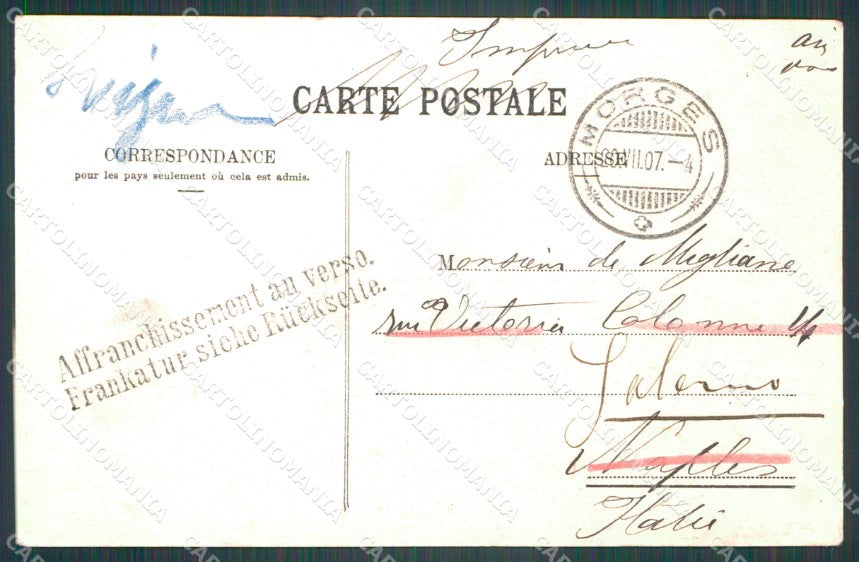 Imprimé
CARTE POSTALE
CORRESPONDANCE
pour les pays seulement où cela est admis.
ADRESSE
MORGES
VII.07.-4
Affranchissement au verso.
Frankatur siehe Rückseite.
Monsieur de Migliane
rue Victoria Colonne 14
Salerno
Naples
Italie
CARTOLINOMANIA